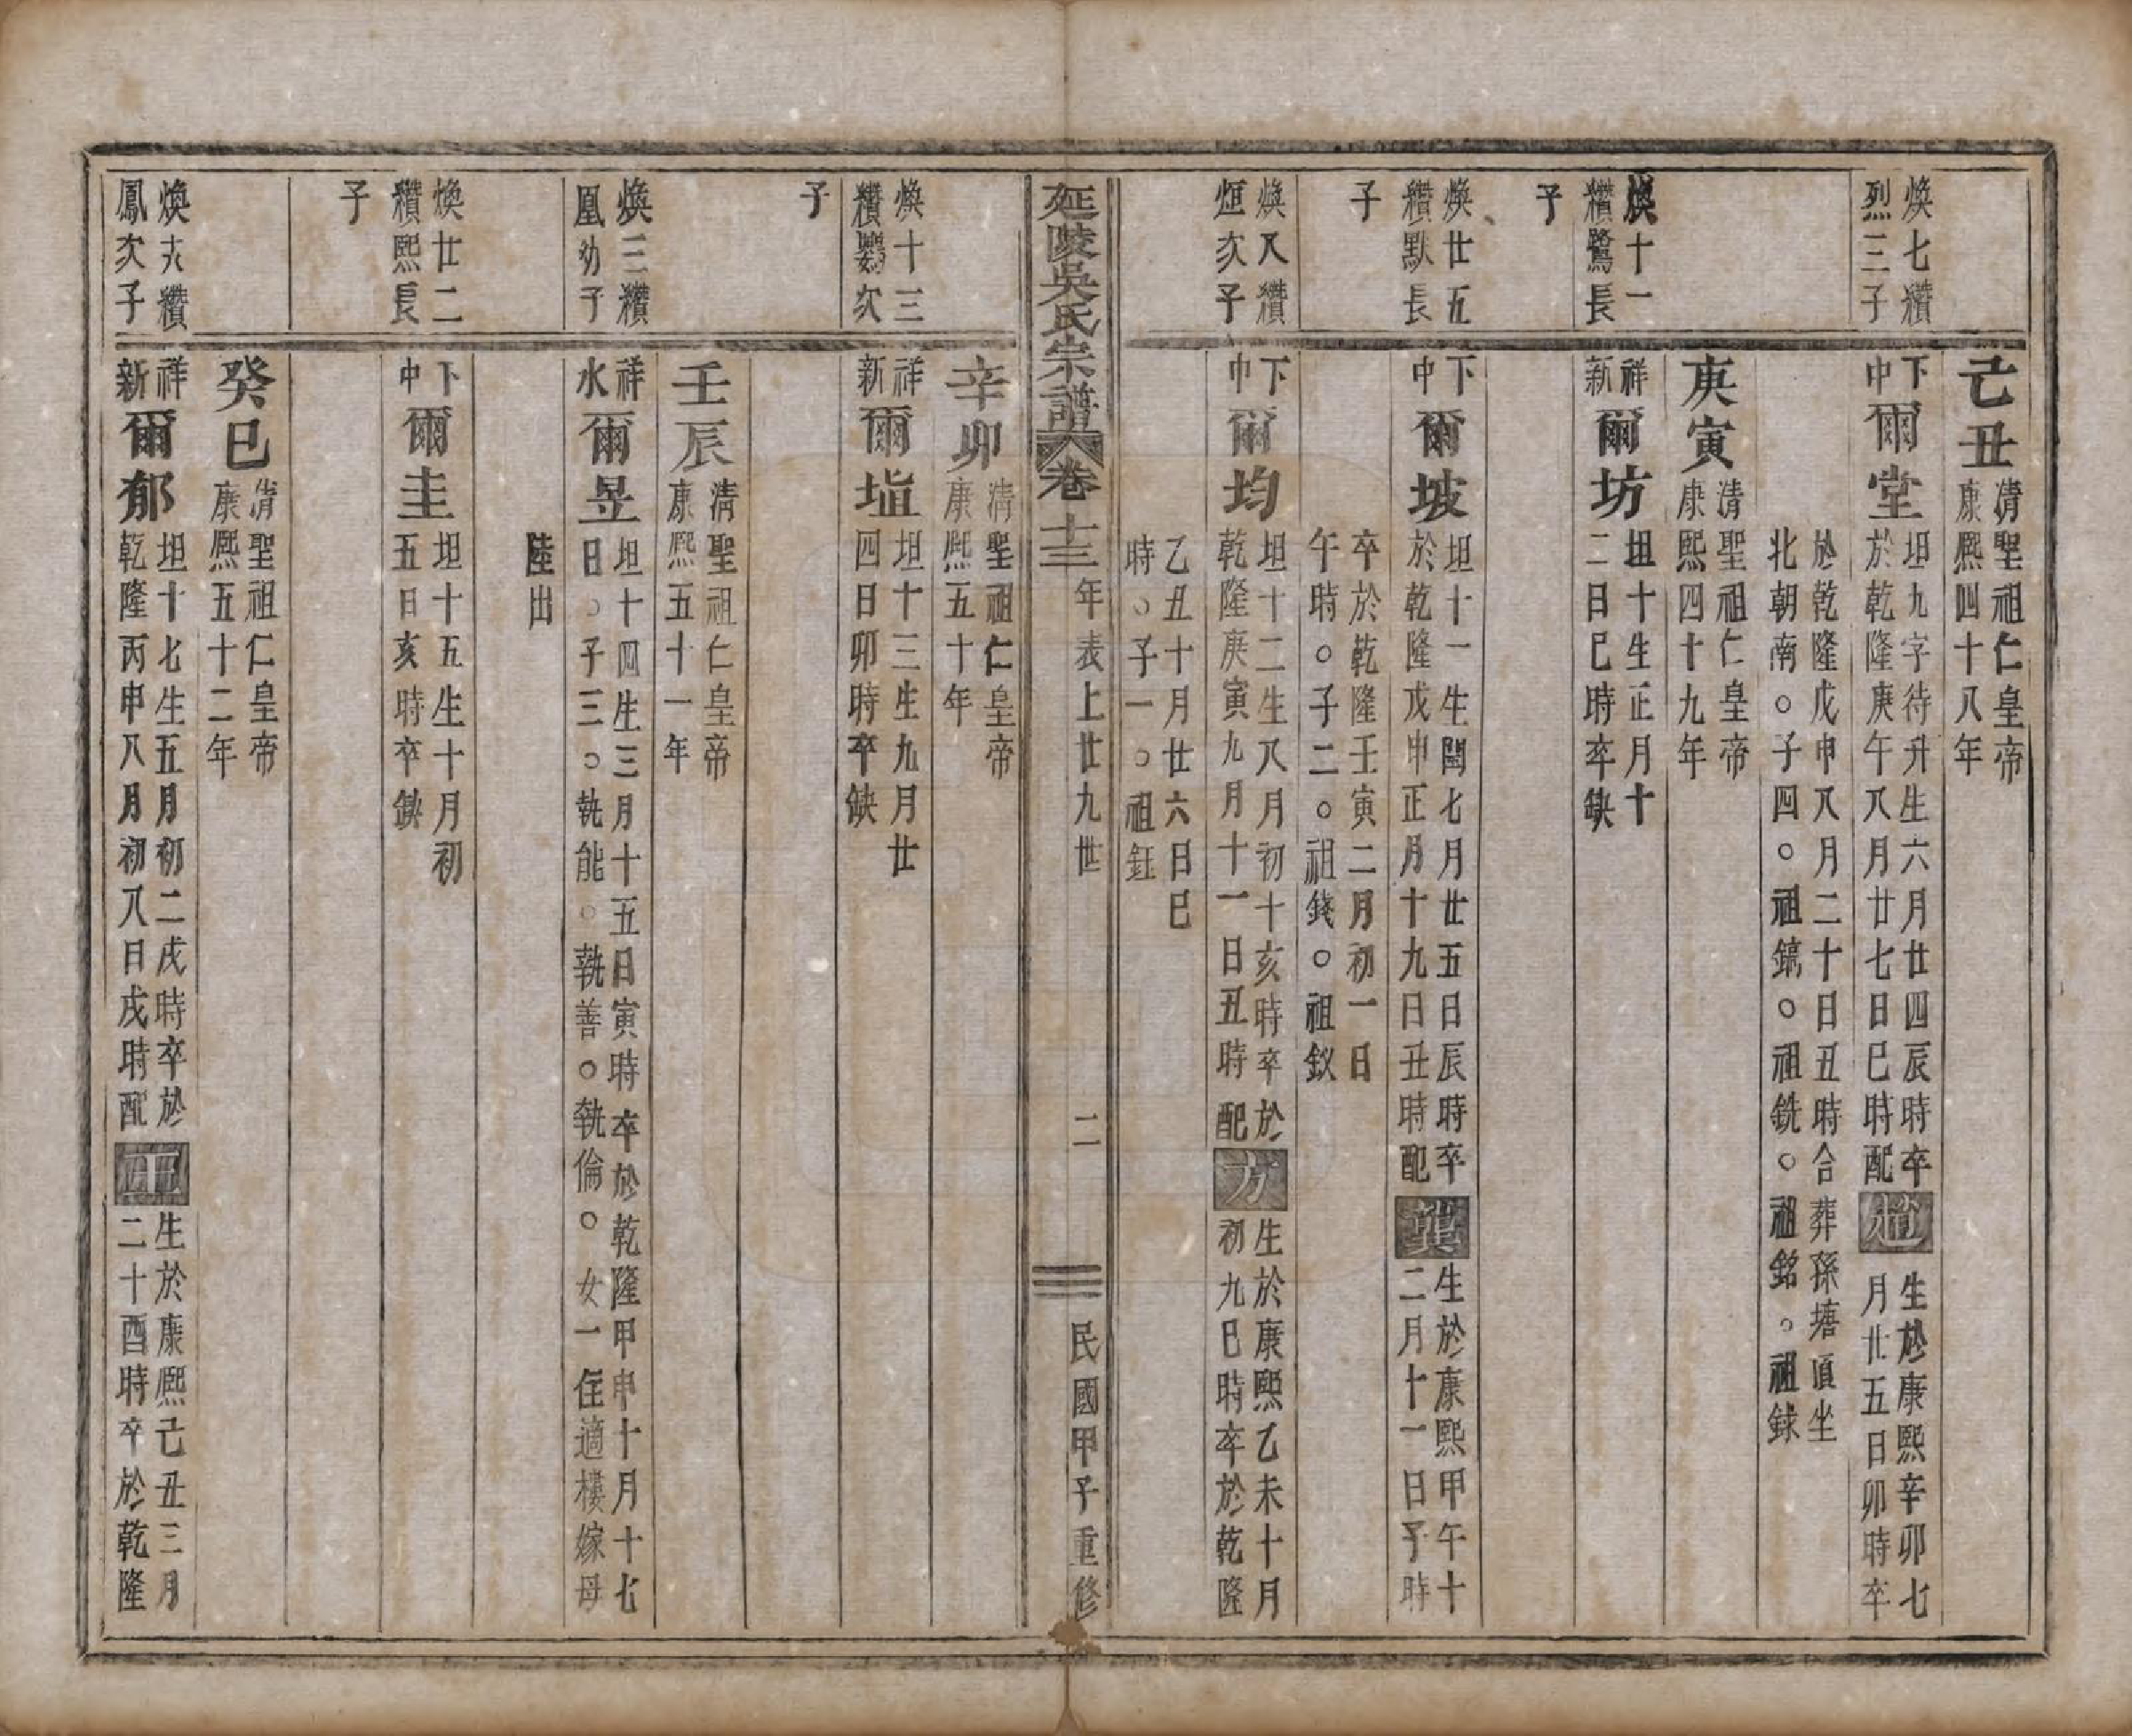 己丑
清聖祖仁皇帝
康熙四十八年
煥七纘
烈三子
下
中
爾堂
坦九字待升生六月廿四辰時卒
於乾隆庚午八月廿七日巳時配
趙
生於康熙辛卯七
月廿五日卯時卒
於乾隆戊申八月二十日丑時合葬孫塘頂坐
北朝南○子四○祖鎬○祖銑○祖銘○祖銶
庚寅
清聖祖仁皇帝
康熙四十九年
煥十一
纘鷺長
子
祥
新
爾坊
坦十生正月十
二日巳時卒缺
煥廿五
纘默長
子
下
中
爾坡
坦十一生閏七月廿五日辰時卒
於乾隆戊申正月十九日丑時配
龔
生於康熙甲午十
二月十一日子時
卒於乾隆壬寅二月初一日
午時○子二○祖錢○祖欽
煥八纘
烜次子
下
中
爾均
坦十二生八月初十亥時卒於
乾隆庚寅九月十一日丑時配
方
生於康熙乙未十月
初九巳時卒於乾隆
乙丑十月廿六日巳
時○子一○祖鈺
延陵吳氏宗譜 卷十三
年表上廿九世
二
民國甲子重修
辛卯
清聖祖仁皇帝
康熙五十年
煥十三
纘鸚次
子
祥
新
爾塩
坦十三生九月廿
四日卯時卒缺
壬辰
清聖祖仁皇帝
康熙五十一年
煥三纘
凰幼子
祥
水
爾昱
坦十四生三月十五日寅時卒於乾隆甲申十月十七
日○子三○執能○執善○執倫○女一侄適樓嫁母
陸出
煥廿二
纘熙長
子
下
中
爾圭
坦十五生十月初
五日亥時卒缺
癸巳
清聖祖仁皇帝
康熙五十二年
煥六纘
鳳次子
祥
新
爾郁
坦十七生五月初二戌時卒於
乾隆丙申八月初八日戌時配
王
生於康熙己丑三月
二十酉時卒於乾隆